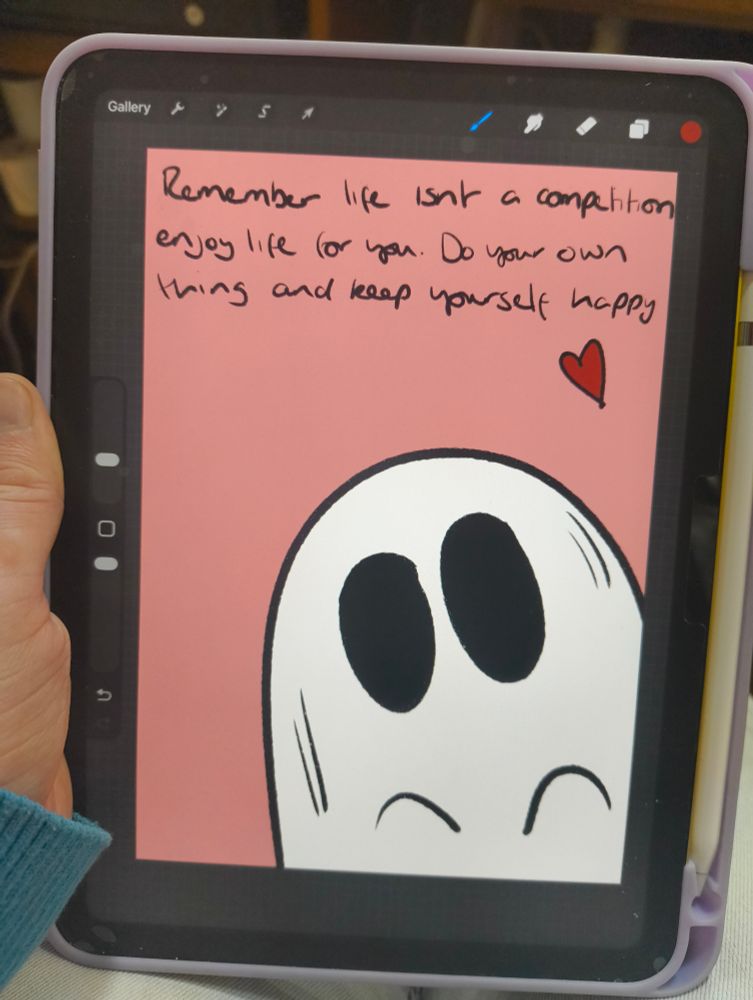 Gallery
Remember life isnt a competition
enjoy life for you. Do your own
thing and keep yourself happy